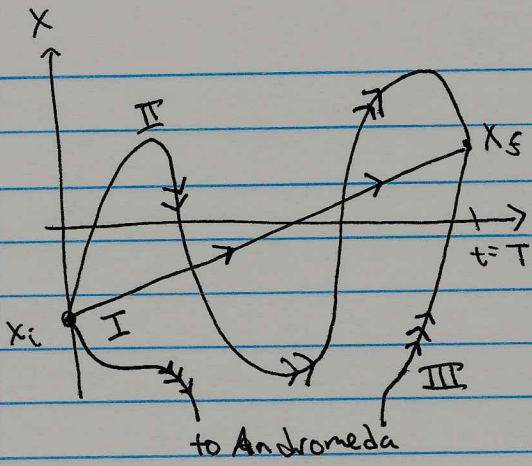 X
II
X_f
t=T
I
x_i
III
to Andromeda